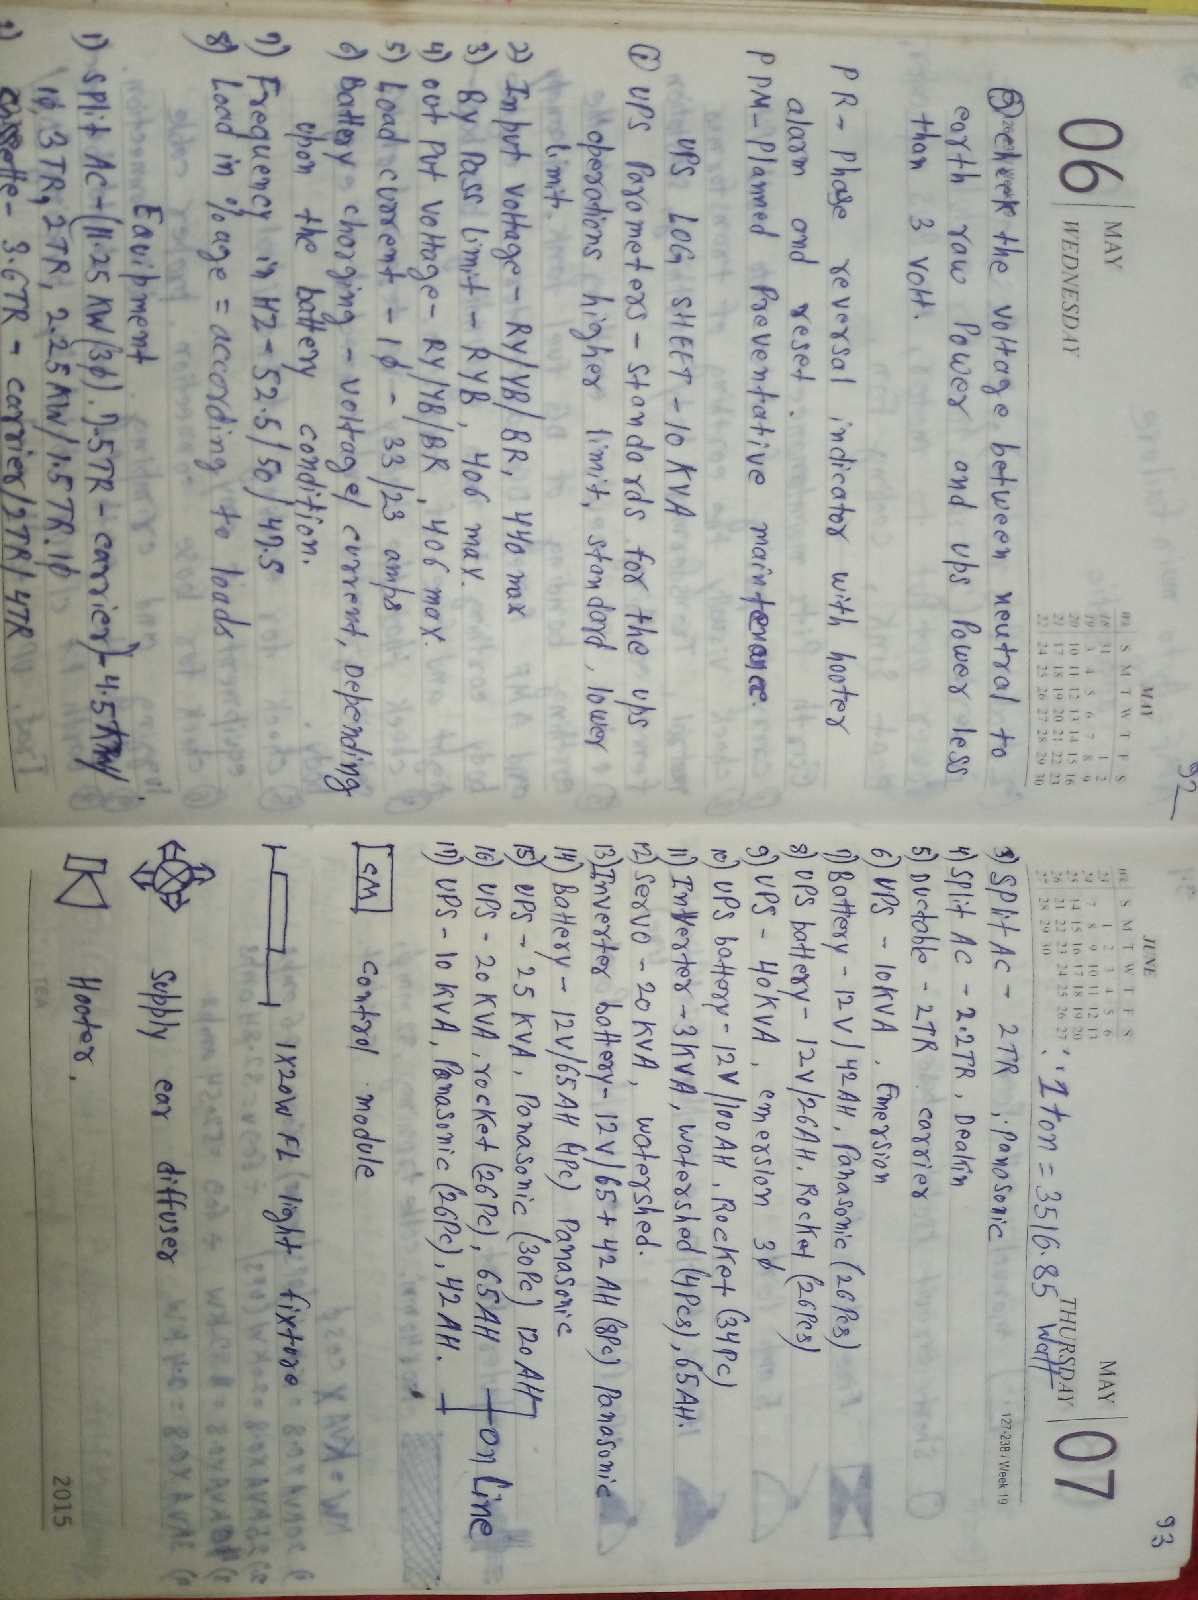 92
06 MAY
WEDNESDAY
MAY
S M T W T F S
31 1 2
3 4 5 6 7 8 9
10 11 12 13 14 15 16
17 18 19 20 21 22 23
24 25 26 27 28 29 30
the voltage between neutral to
earth raw Power and UPS Power less
than 3 volt.
PR → Phase reversal indicator with hooter
alarm and reset.
PPM - Planned Preventative maintenance.
UPS LOG SHEET - 10 KVA
① UPS Parometers - standards for the UPS
operations higher limit, standard, lower
limit.
2) Input voltage - RY/YB/BR, 440 max
3) By Pass limit - RYB, 406 max.
4) out Put voltage - RY/YB/BR, 406 max.
5) Load current - 1ϕ - 33/23 amps
6) Battery charging - voltage/current, Depending
upon the battery condition.
7) Frequency in HZ - 52.5/50/47.5
8) Load in % age = according to loads
Equipment
1) split AC - (11.25 KW/3ϕ). 7.5TR - carrier) - 4.5KW/
1ϕ, 3TR, 2TR, 2.25KW/1.5TR.1ϕ
2) cassette - 3.6TR - carrier/2TR/4TR
93
MAY 07
THURSDAY
127-238 / Week 19
JUNE
S M T W T F S
1 2 3 4 5 6
7 8 9 10 11 12 13
14 15 16 17 18 19 20
21 22 23 24 25 26 27
28 29 30
∴ 1 ton = 3516.85 watt
3) SPlit AC - 2TR, Panosonic
4) Split AC - 2.2TR, Deakin
5) Ductable - 2TR. carrier
6) UPS - 10KVA, Emersion
7) Battery - 12V/42AH, Panasonic (26Pcs)
8) UPS battery - 12V/26AH. Rocket (26Pcs)
9) UPS - 40KVA, emersion 3ϕ
10) UPS battery - 12V/100AH, Rocket (34Pc)
11) Inverter - 3KVA, watershed (4Pcs), 65AH.
12) Servo - 20KVA, watershed.
13) Inverter battery - 12V/65+42AH (8Pc) Panasonic
14) Battery - 12V/65AH (4Pc) Panasonic
15) UPS - 25 KVA, Panasonic (30Pc) 120AH
16) UPS - 20 KVA, rocket (26Pc), 65AH
on line
17) UPS - 10 KVA, Panasonic (26Pc), 42AH.
CM control module
1X20W FL light fixture
Supply ear diffuser
Hooter,
2015